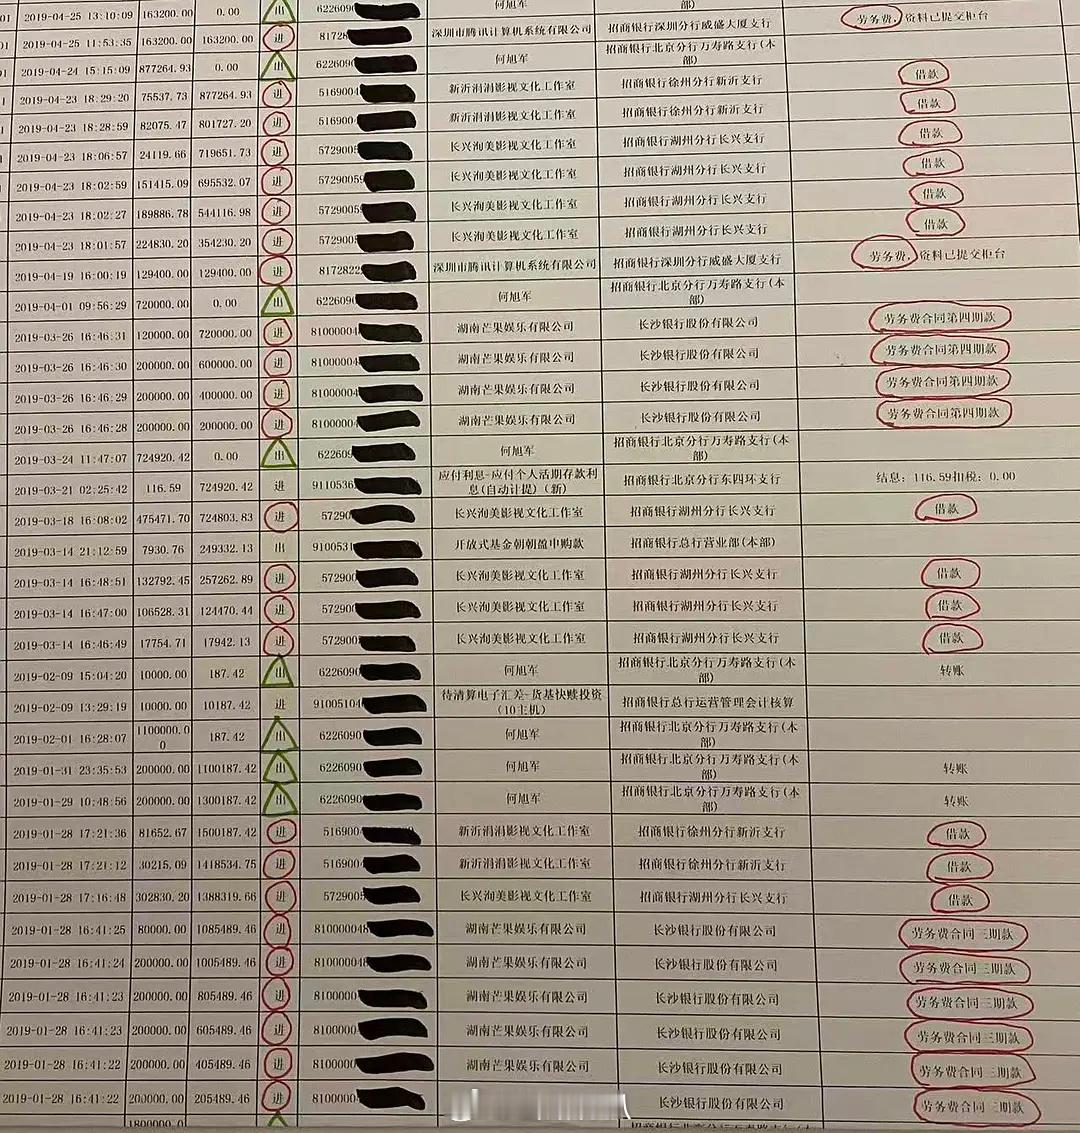 01 2019-04-25 13:10:09 163200.00 0.00 出 6226090 何旭军 部)
01 2019-04-25 11:53:35 163200.00 163200.00 进 81728 深圳市腾讯计算机系统有限公司 招商银行深圳分行威盛大厦支行 劳务费,资料已提交柜台
01 2019-04-24 15:15:09 877264.93 0.00 出 622609 何旭军 招商银行北京分行万寿路支行(本部)
1 2019-04-23 18:29:20 75537.73 877264.93 进 516900 新沂涓涓影视文化工作室 招商银行徐州分行新沂支行 借款
1 2019-04-23 18:28:59 82075.47 801727.20 进 516900 新沂涓涓影视文化工作室 招商银行徐州分行新沂支行 借款
2019-04-23 18:06:57 24119.66 719651.73 进 5729005 长兴洵美影视文化工作室 招商银行湖州分行长兴支行 借款
2019-04-23 18:02:59 151415.09 695532.07 进 5729005 长兴洵美影视文化工作室 招商银行湖州分行长兴支行 借款
2019-04-23 18:02:27 189886.78 544116.98 进 5729005 长兴洵美影视文化工作室 招商银行湖州分行长兴支行 借款
2019-04-23 18:01:57 224830.20 354230.20 进 572900 长兴洵美影视文化工作室 招商银行湖州分行长兴支行 借款
2019-04-19 16:00:19 129400.00 129400.00 进 817282 深圳市腾讯计算机系统有限公司 招商银行深圳分行威盛大厦支行 劳务费,资料已提交柜台
2019-04-01 09:56:29 720000.00 0.00 出 622609 何旭军 招商银行北京分行万寿路支行(本部)
2019-03-26 16:46:31 120000.00 720000.00 进 8100004 湖南芒果娱乐有限公司 长沙银行股份有限公司 劳务费合同第四期款
2019-03-26 16:46:30 200000.00 600000.00 进 8100000 湖南芒果娱乐有限公司 长沙银行股份有限公司 劳务费合同第四期款
2019-03-26 16:46:29 200000.00 400000.00 进 8100000 湖南芒果娱乐有限公司 长沙银行股份有限公司 劳务费合同第四期款
2019-03-26 16:46:28 200000.00 200000.00 进 810000 湖南芒果娱乐有限公司 长沙银行股份有限公司 劳务费合同第四期款
2019-03-24 11:47:07 724920.42 0.00 出 62260 何旭军 招商银行北京分行万寿路支行(本部)
2019-03-21 02:25:42 116.59 724920.42 进 911053 应付利息-应付个人活期存款利息(自动计提)(新) 招商银行北京分行东四环支行 结息:116.59扣税:0.00
2019-03-18 16:08:02 475471.70 724803.83 进 5729 长兴洵美影视文化工作室 招商银行湖州分行长兴支行 借款
2019-03-14 21:12:59 7930.76 249332.13 出 910053 开放式基金朝朝盈申购款 招商银行总行营业部(本部)
2019-03-14 16:48:51 132792.45 257262.89 进 57290 长兴洵美影视文化工作室 招商银行湖州分行长兴支行 借款
2019-03-14 16:47:00 106528.31 124470.44 进 57290 长兴洵美影视文化工作室 招商银行湖州分行长兴支行 借款
2019-03-14 16:46:49 17754.71 17942.13 进 57290 长兴洵美影视文化工作室 招商银行湖州分行长兴支行 借款
2019-02-09 15:04:20 10000.00 187.42 出 622609 何旭军 招商银行北京分行万寿路支行(本部) 转账
2019-02-09 13:29:19 10000.00 10187.42 进 91005104 待清算电子汇差-货基快赎投资(10主机) 招商银行总行运营管理会计核算
2019-02-01 16:28:07 1100000.00 187.42 出 622609 何旭军 招商银行北京分行万寿路支行(本部)
2019-01-31 23:35:53 200000.00 1100187.42 出 622609 何旭军 招商银行北京分行万寿路支行(本部) 转账
2019-01-29 10:48:56 200000.00 1300187.42 出 622609 何旭军 招商银行北京分行万寿路支行(本部) 转账
2019-01-28 17:21:36 81652.67 1500187.42 进 51690 新沂涓涓影视文化工作室 招商银行徐州分行新沂支行 借款
2019-01-28 17:21:12 30215.09 1418534.75 进 51690 新沂涓涓影视文化工作室 招商银行徐州分行新沂支行 借款
2019-01-28 17:16:48 302830.20 1388319.66 进 57290 长兴洵美影视文化工作室 招商银行湖州分行长兴支行 借款
2019-01-28 16:41:25 80000.00 1085489.46 进 81000004 湖南芒果娱乐有限公司 长沙银行股份有限公司 劳务费合同三期款
2019-01-28 16:41:24 200000.00 1005489.46 进 8100000 湖南芒果娱乐有限公司 长沙银行股份有限公司 劳务费合同三期款
2019-01-28 16:41:23 200000.00 805489.46 进 810000 湖南芒果娱乐有限公司 长沙银行股份有限公司 劳务费合同三期款
2019-01-28 16:41:23 200000.00 605489.46 进 810000 湖南芒果娱乐有限公司 长沙银行股份有限公司 劳务费合同三期款
2019-01-28 16:41:22 200000.00 405489.46 进 810000 湖南芒果娱乐有限公司 长沙银行股份有限公司 劳务费合同三期款
2019-01-28 16:41:22 200000.00 205489.46 进 810000 长沙银行股份有限公司 劳务费合同三期款
1800000.0